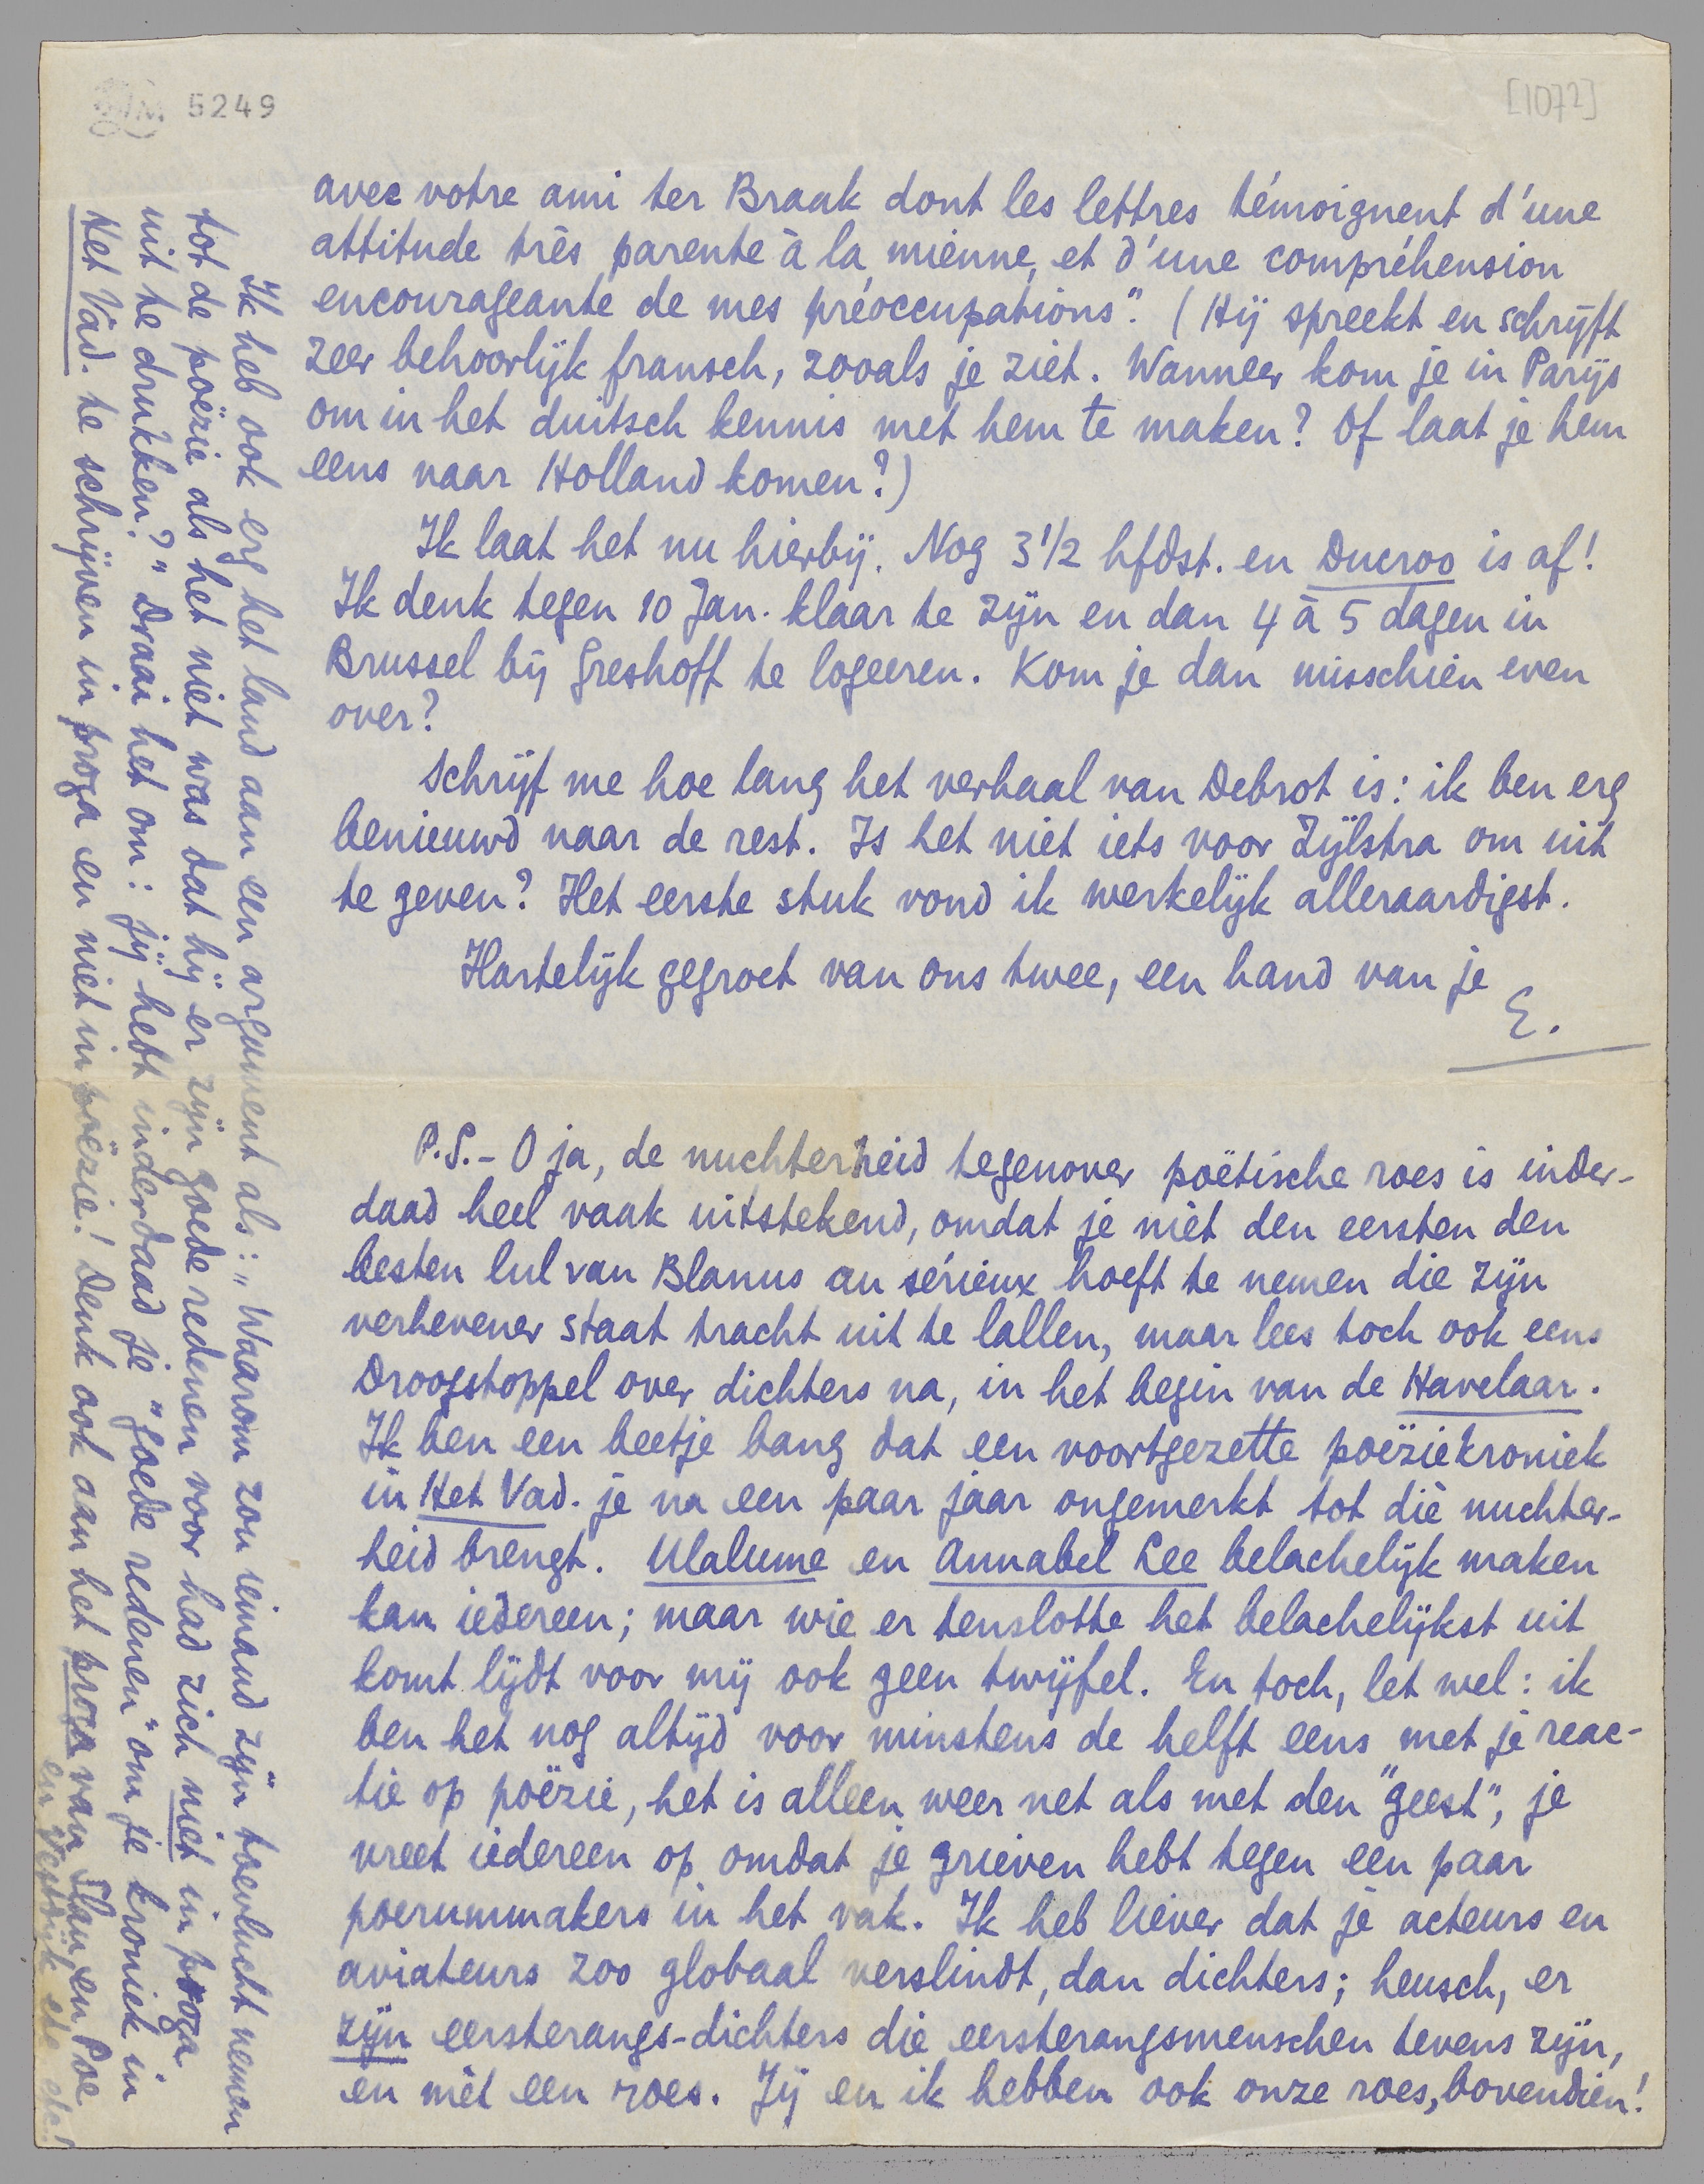 5249
[1072]
avec votre ami ter Braak dont les lettres témoignent d'une
attitude très parente à la mienne, et d'une compréhension
encourageante de mes préoccupations". (Hij spreekt en schrijft
zeer behoorlijk fransch, zooals je ziet. Wanneer kom je in Parijs
om in het duitsch kennis met hem te maken? Of laat je hem
eens naar Holland komen?)
Ik laat het nu hierbij. Nog 3 1/2 hfdst. en Ducroo is af!
Ik denk tegen 10 Jan. klaar te zijn en dan 4 à 5 dagen in
Brussel bij Greshoff te logeeren. Kom je dan misschien even
over?
Schrijf me hoe lang het verhaal van Debrot is: ik ben erg
benieuwd naar de rest. Is het niet iets voor Zijlstra om uit
te geven? Het eerste stuk vond ik werkelijk alleraardigst.
Hartelijk gegroet van ons twee, een hand van je
E.
P.S. - O ja, de nuchterheid tegenover poëtische roes is inder-
daad heel vaak uitstekend, omdat je niet den eersten den
besten lul van Blanus au sérieux hoeft te nemen die zijn
verhevener staat tracht uit te lallen, maar lees toch ook eens
Droogstoppel over dichters na, in het begin van de Havelaar.
Ik ben een beetje bang dat een voortgezette poëziekroniek
in Het Vad. je na een paar jaar ongemerkt tot dié nuchter-
heid brengt. Ulalume en Annabel Lee belachelijk maken
kan iedereen; maar wie er tenslotte het belachelijkst uit
komt lijdt voor mij ook geen twijfel. En toch, let wel: ik
ben het nog altijd voor minstens de helft eens met je reac-
tie op poëzie, het is alleen weer net als met den "geest", je
vreet iedereen op omdat je grieven hebt tegen een paar
poerummakers in het vak. Ik heb liever dat je acteurs en
aviateurs zoo globaal verslindt, dan dichters; heusch, er
zijn eersterangs-dichters die eersterangsmenschen tevens zijn,
en mèt een roes. Jij en ik hebben ook onze roes, bovendien!
Ik heb ook erg het land aan een argument als: "Waarom zou iemand zijn toevlucht nemen
tot de poëzie als het niet was dat hij er zijn goede redenen voor had zich niet in proza
uit te drukken?" Draai het om: jij hebt inderdaad je "goede redenen" om je kroniek in
Het Vad. te schrijven in proza en niet in poëzie! Denk ook aan het proza van Slau en Poe
en Vestdijk etc. etc.!